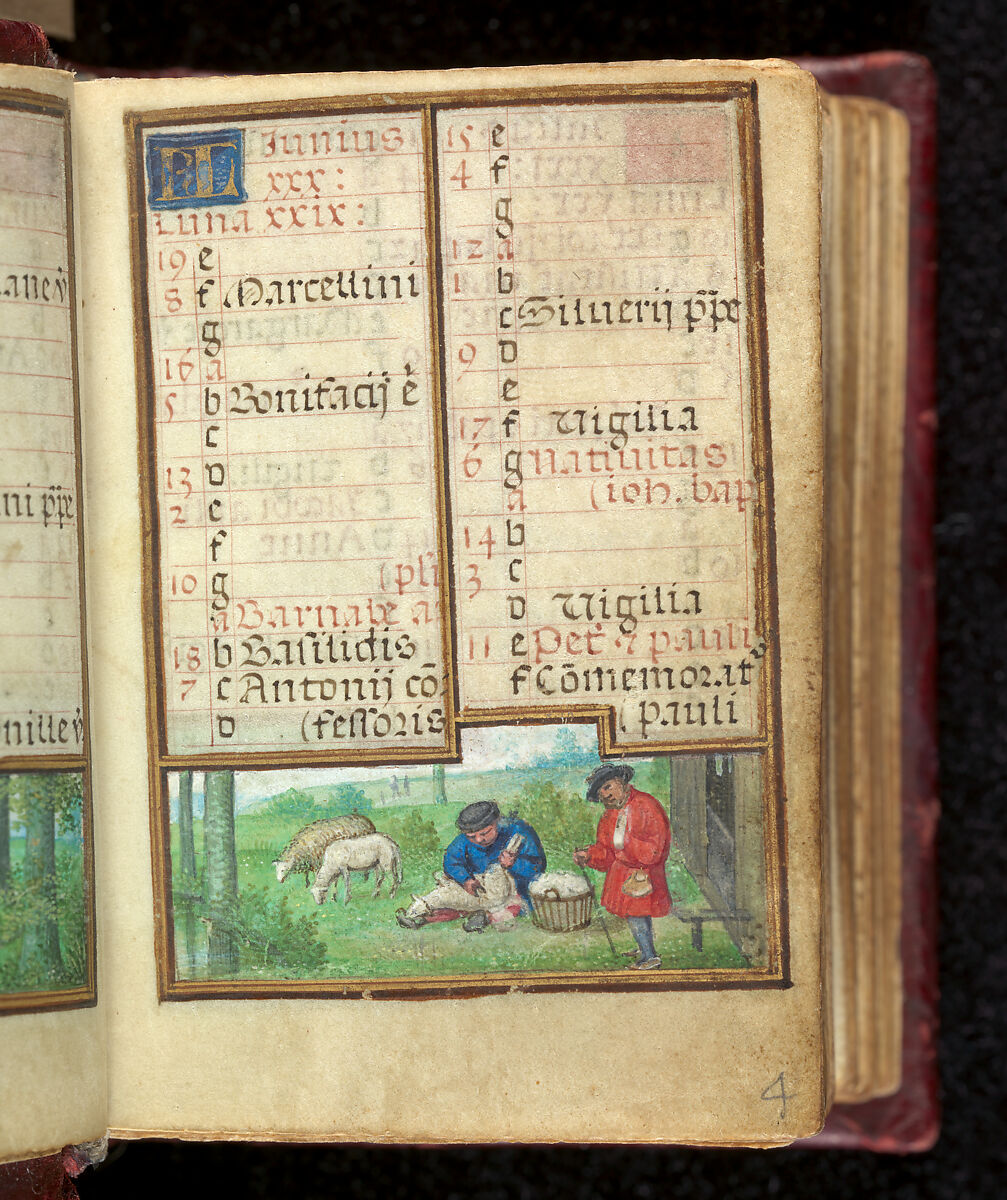 KL Junius
xxx:
Luna xxix:
19 e
8 f Marcellini
g
16 a
5 b Bonifacij ē
c
13 d
2 e
f
10 g (pli
a Barnabe a
18 b Basilidis
7 c Antonij cō
d (fessoris
15 e
4 f
g
12 a
1 b
c Siluerij pp̄e
9 d
e
17 f Uigilia
6 g Natiuitas
a (ioh. bap
14 b
3 c
d Uigilia
11 e Petˀ ⁊ pauli
f Cōmemorat
(pauli
4
ni pp̄e